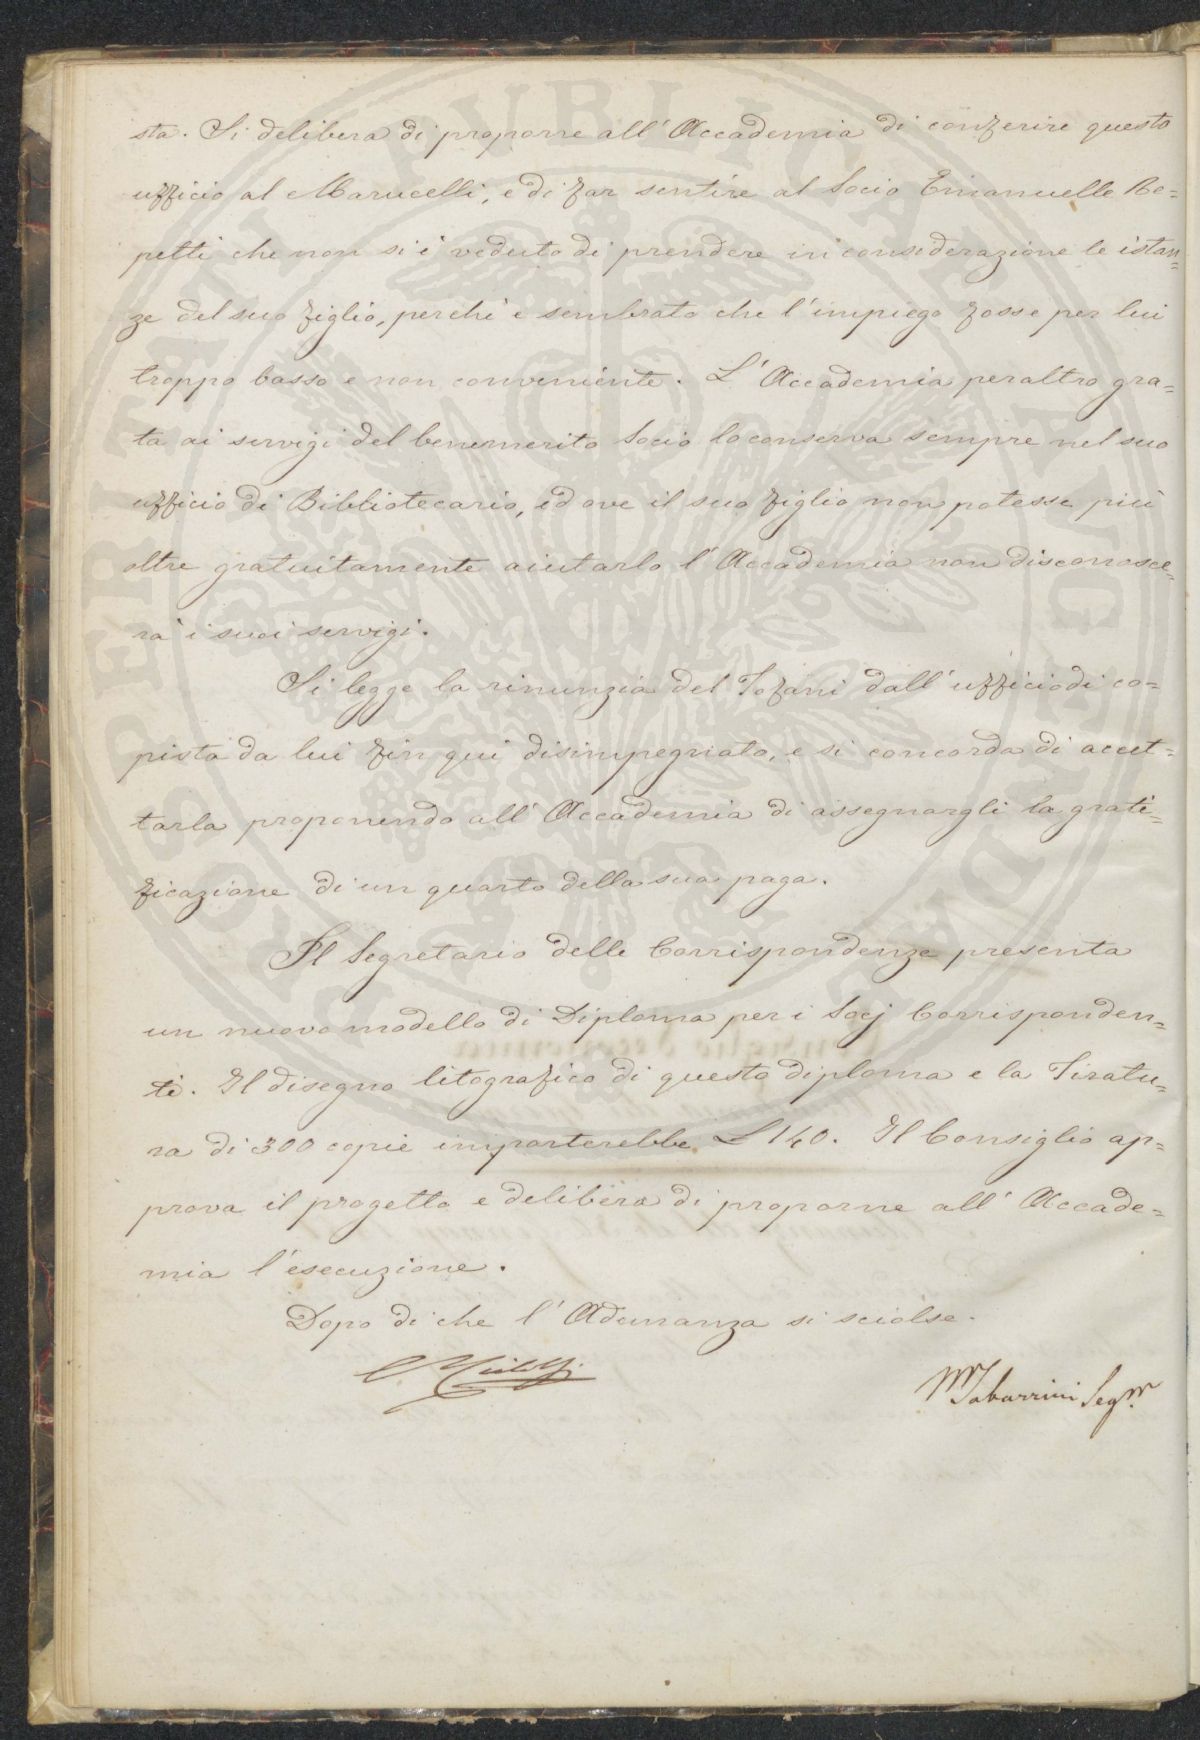 sta. Si delibera di proporre all' Accademia di conferire questo
ufficio al Marucelli, e di far sentire al Socio Emanuelle Re=
petti che non si è veduto di prendere in considerazione le istan=
ze del suo figlio, perchè è sembrato che l'impiego fosse per lui
troppo basso e non conveniente. L'Accademia peraltro gra=
ta ai servigi del benemerito Socio lo conserva sempre nel suo
ufficio di Bibliotecario, ed ove il suo figlio non potesse più
oltre gratuitamente aiutarlo l'Accademia non disconosce=
rà i suoi servigi.
Si legge la rinunzia del Tofani dall'ufficio di co=
pista da lui fin qui disimpegnato, e si concorda di accet=
tarla proponendo all'Accademia di assegnargli la grati=
ficazione di un quarto della sua paga.
Il Segretario delle Corrispondenze presenta
un nuovo modello di Diploma per i Socj Corrisponden=
ti. Il disegno litografico di questo diploma e la Tiratu=
ra di 300 copie importerebbe L 140. Il Consiglio ap=
prova il progetto e delibera di proporne all'Accade=
mia l'esecuzione.
Dopo di che l'Adunanza si sciolse.
M Tabarrini Seg.
PROSPERITATI PVBLICAE AVGENDAE